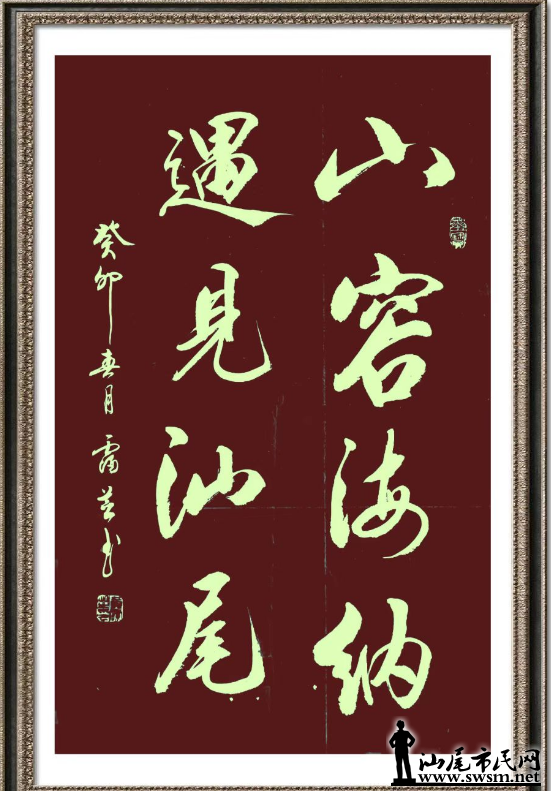 山容海纳
遇見汕尾
癸卯春月
汕尾市民网
www.swsm.net